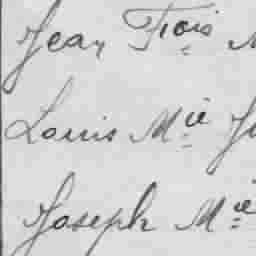 Jean Fçois
Louis Mie
Joseph Mie